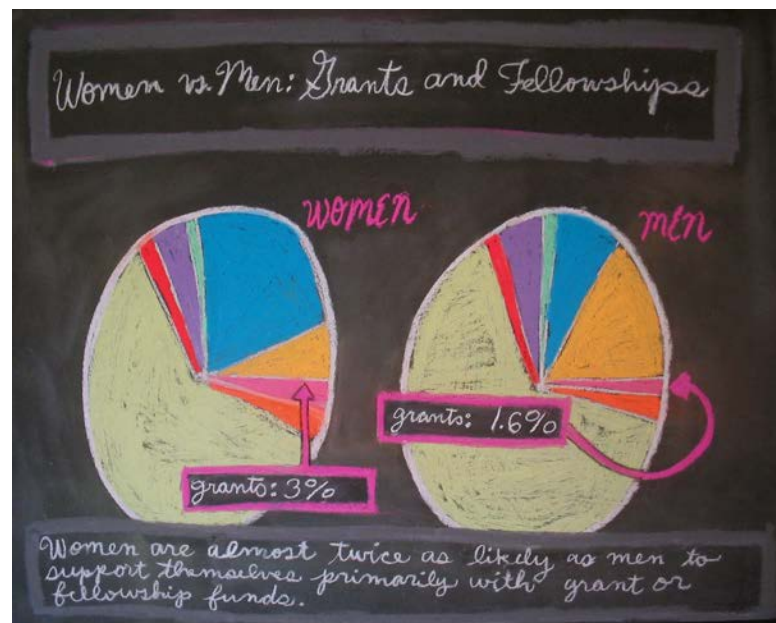 Women vs. Men: Grants and Fellowships
WOMEN
MEN
grants: 1.6%
grants: 3%
Women are almost twice as likely as men to
support themselves primarily with grant or
fellowship funds.